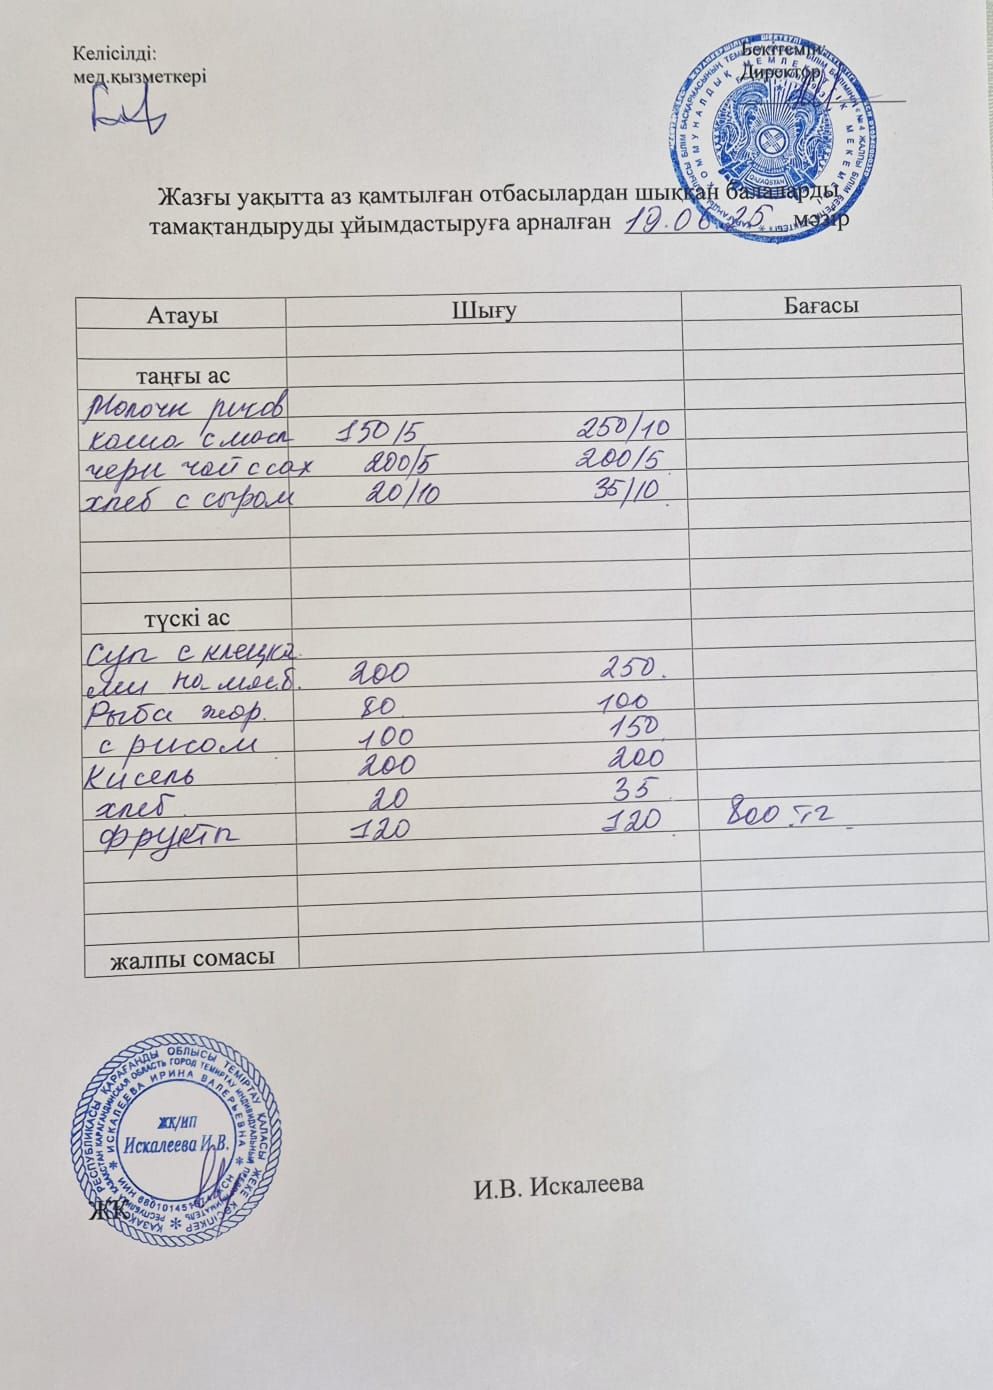 Келісілді:
мед.қызметкері
Бекітемін:
Директор
Жазғы уақытта аз қамтылған отбасылардан шыққан балаларды
тамақтандыруды ұйымдастыруға арналған 19.06.25 мәзір
Атауы Шығу Бағасы
таңғы ас
Молочн рисов
каша с масл 150/5 250/10
черн чай с сах 200/5 200/5
хлеб с сыром 20/10 35/10
түскі ас
Суп с клецка
ми на мяс.б. 200 250
Рыба жар. 80 100
с рисом 100 150
Кисель 200 200
хлеб 20 35
фрукт 120 120 800 тг
жалпы сомасы
ЖК/ИП
Искалеева И.В.
ЖК
И.В. Искалеева